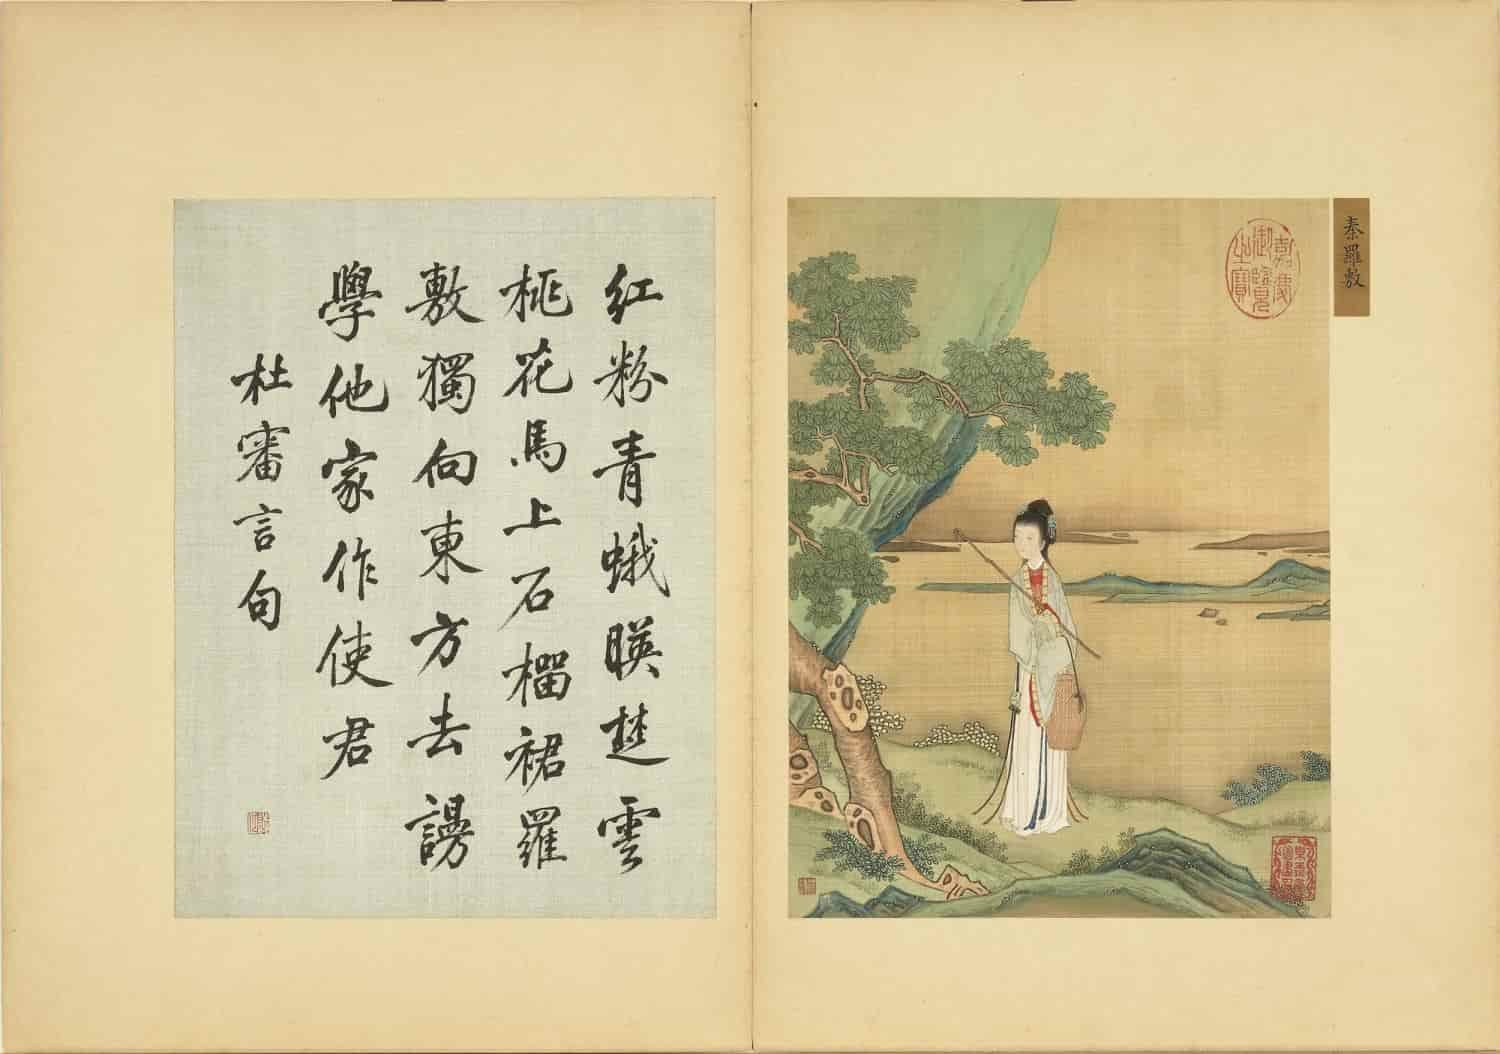 秦羅敷
嘉慶御覽之寶
紅粉青蛾暎楚雲
桃花馬上石榴裙羅
敷獨向東方去謾
學他家作使君
杜審言句